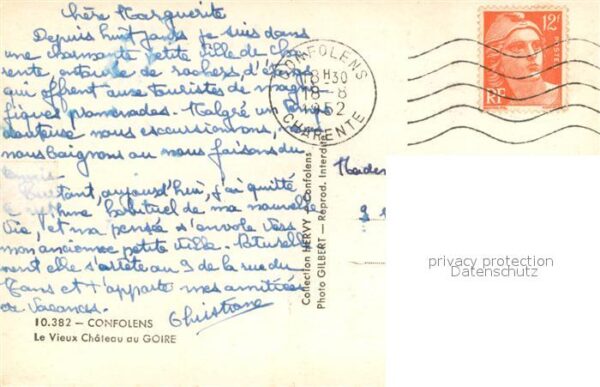 Chère Marguerite
Depuis huit jours je suis dans
une charmante petite ville de Cha
rente, entourée de rochers, d'
qui offrent aux touristes de magni
fiques promenades. Malgré un temps
douteux nous excursionnons,
nous baignons ou nous faisons du

Pourtant, aujourd'hui, j'ai quitté
le rythme habituel de ma nouvelle
vie, et ma pensée s'envole vers
mon ancienne petite ville. Naturelle
ment elle s'arrête au 9 de la rue du
et t'apporte mes amitiés
de vacances.
Ghislaine
10.382 — CONFOLENS
Le Vieux Château au GOIRE
Collection HERVY - Confolens
Photo GILBERT - Reprod. Interdite
CONFOLENS
18H30
18-8
1952
CHARENTE
12F
POSTES
RF
9
privacy protection
Datenschutz